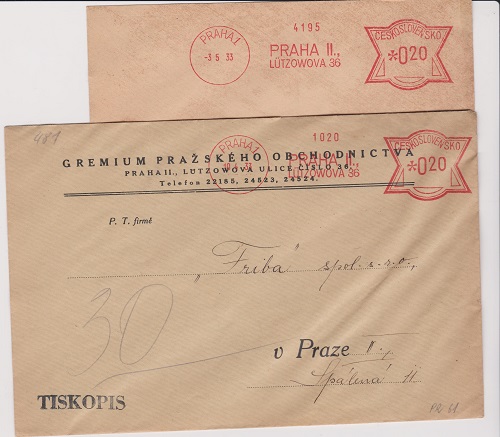 PRAHA 1
-3 5 33
4195
PRAHA II.,
LÜTZOWOVA 36
ČESKOSLOVENSKO
*020
481
PRAHA 1
1020
PRAHA II.,
LÜTZOWOVA 36
ČESKOSLOVENSKO
*020
GREMIUM PRAŽSKÉHO OBCHODNICTVA
PRAHA II., LÜTZOWOVA ULICE ČÍSLO 36.
Telefon 22185, 24523, 24524.
P. T. firmě
„Friba" spol. s r. o.,
30
v Praze II.,
Spálená 11
TISKOPIS
PR 61